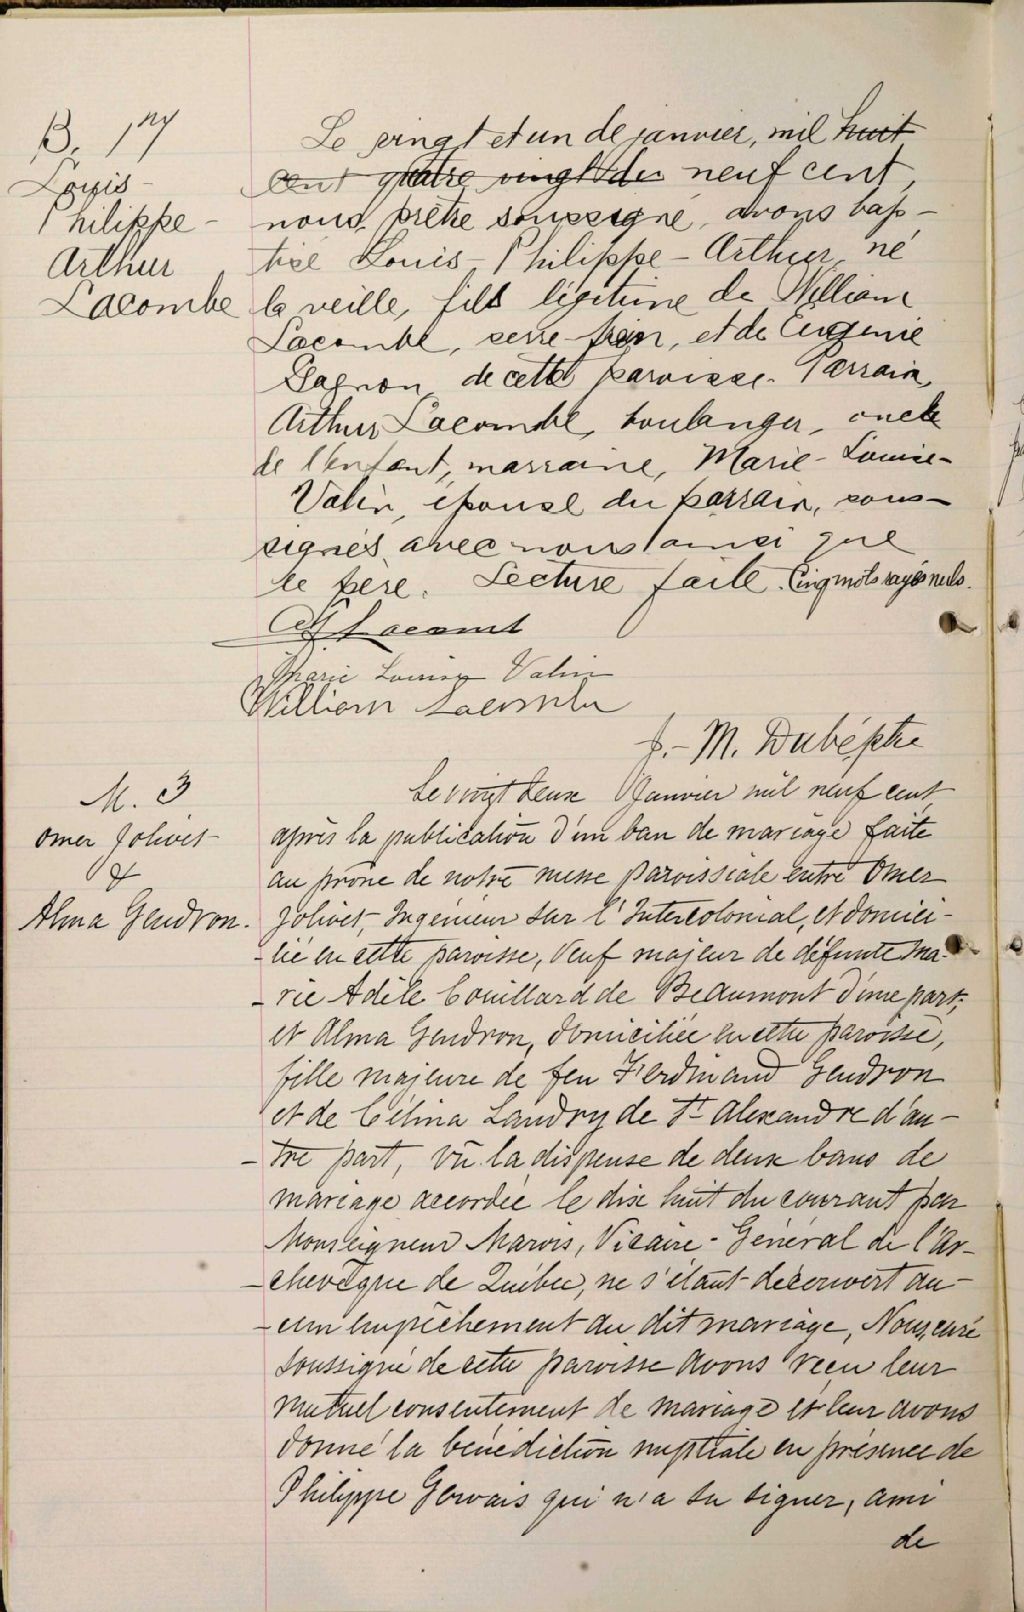 B. 17
Louis-
Philippe-
Arthur
Lacombe
Le vingt et un de janvier, mil huit
cent quatre vingt dix neuf cent,
nous, prêtre soussigné, avons bap-
tisé Louis-Philippe-Arthur, né
la veille, fils légitime de William
Lacombe, serre-frein, et de Eugénie
Gagnon, de cette paroisse. Parrain,
Arthur Lacombe, boulanger, oncle
de l'enfant, marraine, Marie-Louise-
Valin, épouse du parrain, sous-
signés avec nous ainsi que
le père. Lecture faite. Cinq mots rayés nuls.
Lacombe
Marie Louise Valin
William Lacombe
J.-M. Dubé, ptre
M. 3
Omer Jolivet
&
Alma Gendron.
Le vingt deux Janvier mil neuf cent,
après la publication d'un ban de mariage faite
au prône de notre messe paroissiale entre Omer
Jolivet, Ingénieur sur l'Intercolonial, et domici-
-lié en cette paroisse, Veuf majeur de défunte Ma-
-rie Adèle Couillard de Beaumont d'une part;
et Alma Gendron, domiciliée en cette paroisse,
fille majeure de feu Ferdinand Gendron
et de Célina Landry de St Alexandre d'au-
-tre part, vû la dispense de deux bans de
mariage accordée le dix huit du courant par
Monseigneur Marois, Vicaire-Général de l'Ar-
-chevêque de Québec, ne s'étant découvert au-
-cun empêchement au dit mariage, Nous, curé
soussigné de cette paroisse avons reçu leur
mutuel consentement de mariage et leur avons
donné la bénédiction nuptiale en présence de
Philippe Gervais qui n'a su signer, ami
de